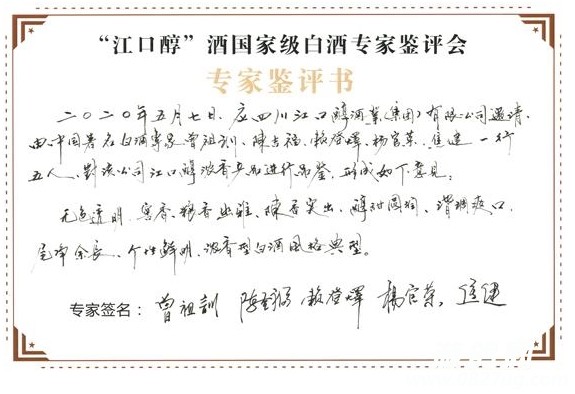 “江口醇”酒国家级白酒专家鉴评会
专家鉴评书
二〇二〇年五月七日，应四川江口醇酒业(集团)有限公司邀请，
由中国著名白酒专家曾祖训、陈吉福、赖登燡、杨官荣、焦健一行
五人，对该公司江口醇浓香产品进行品鉴，形成如下意见：
无色透明、窖香、粮香幽雅、陈香突出、醇甜圆润、谐调爽口、
尾净余長、个性鲜明、浓香型白酒风格典型。
专家签名：曾祖訓 赖登燡 楊官荣